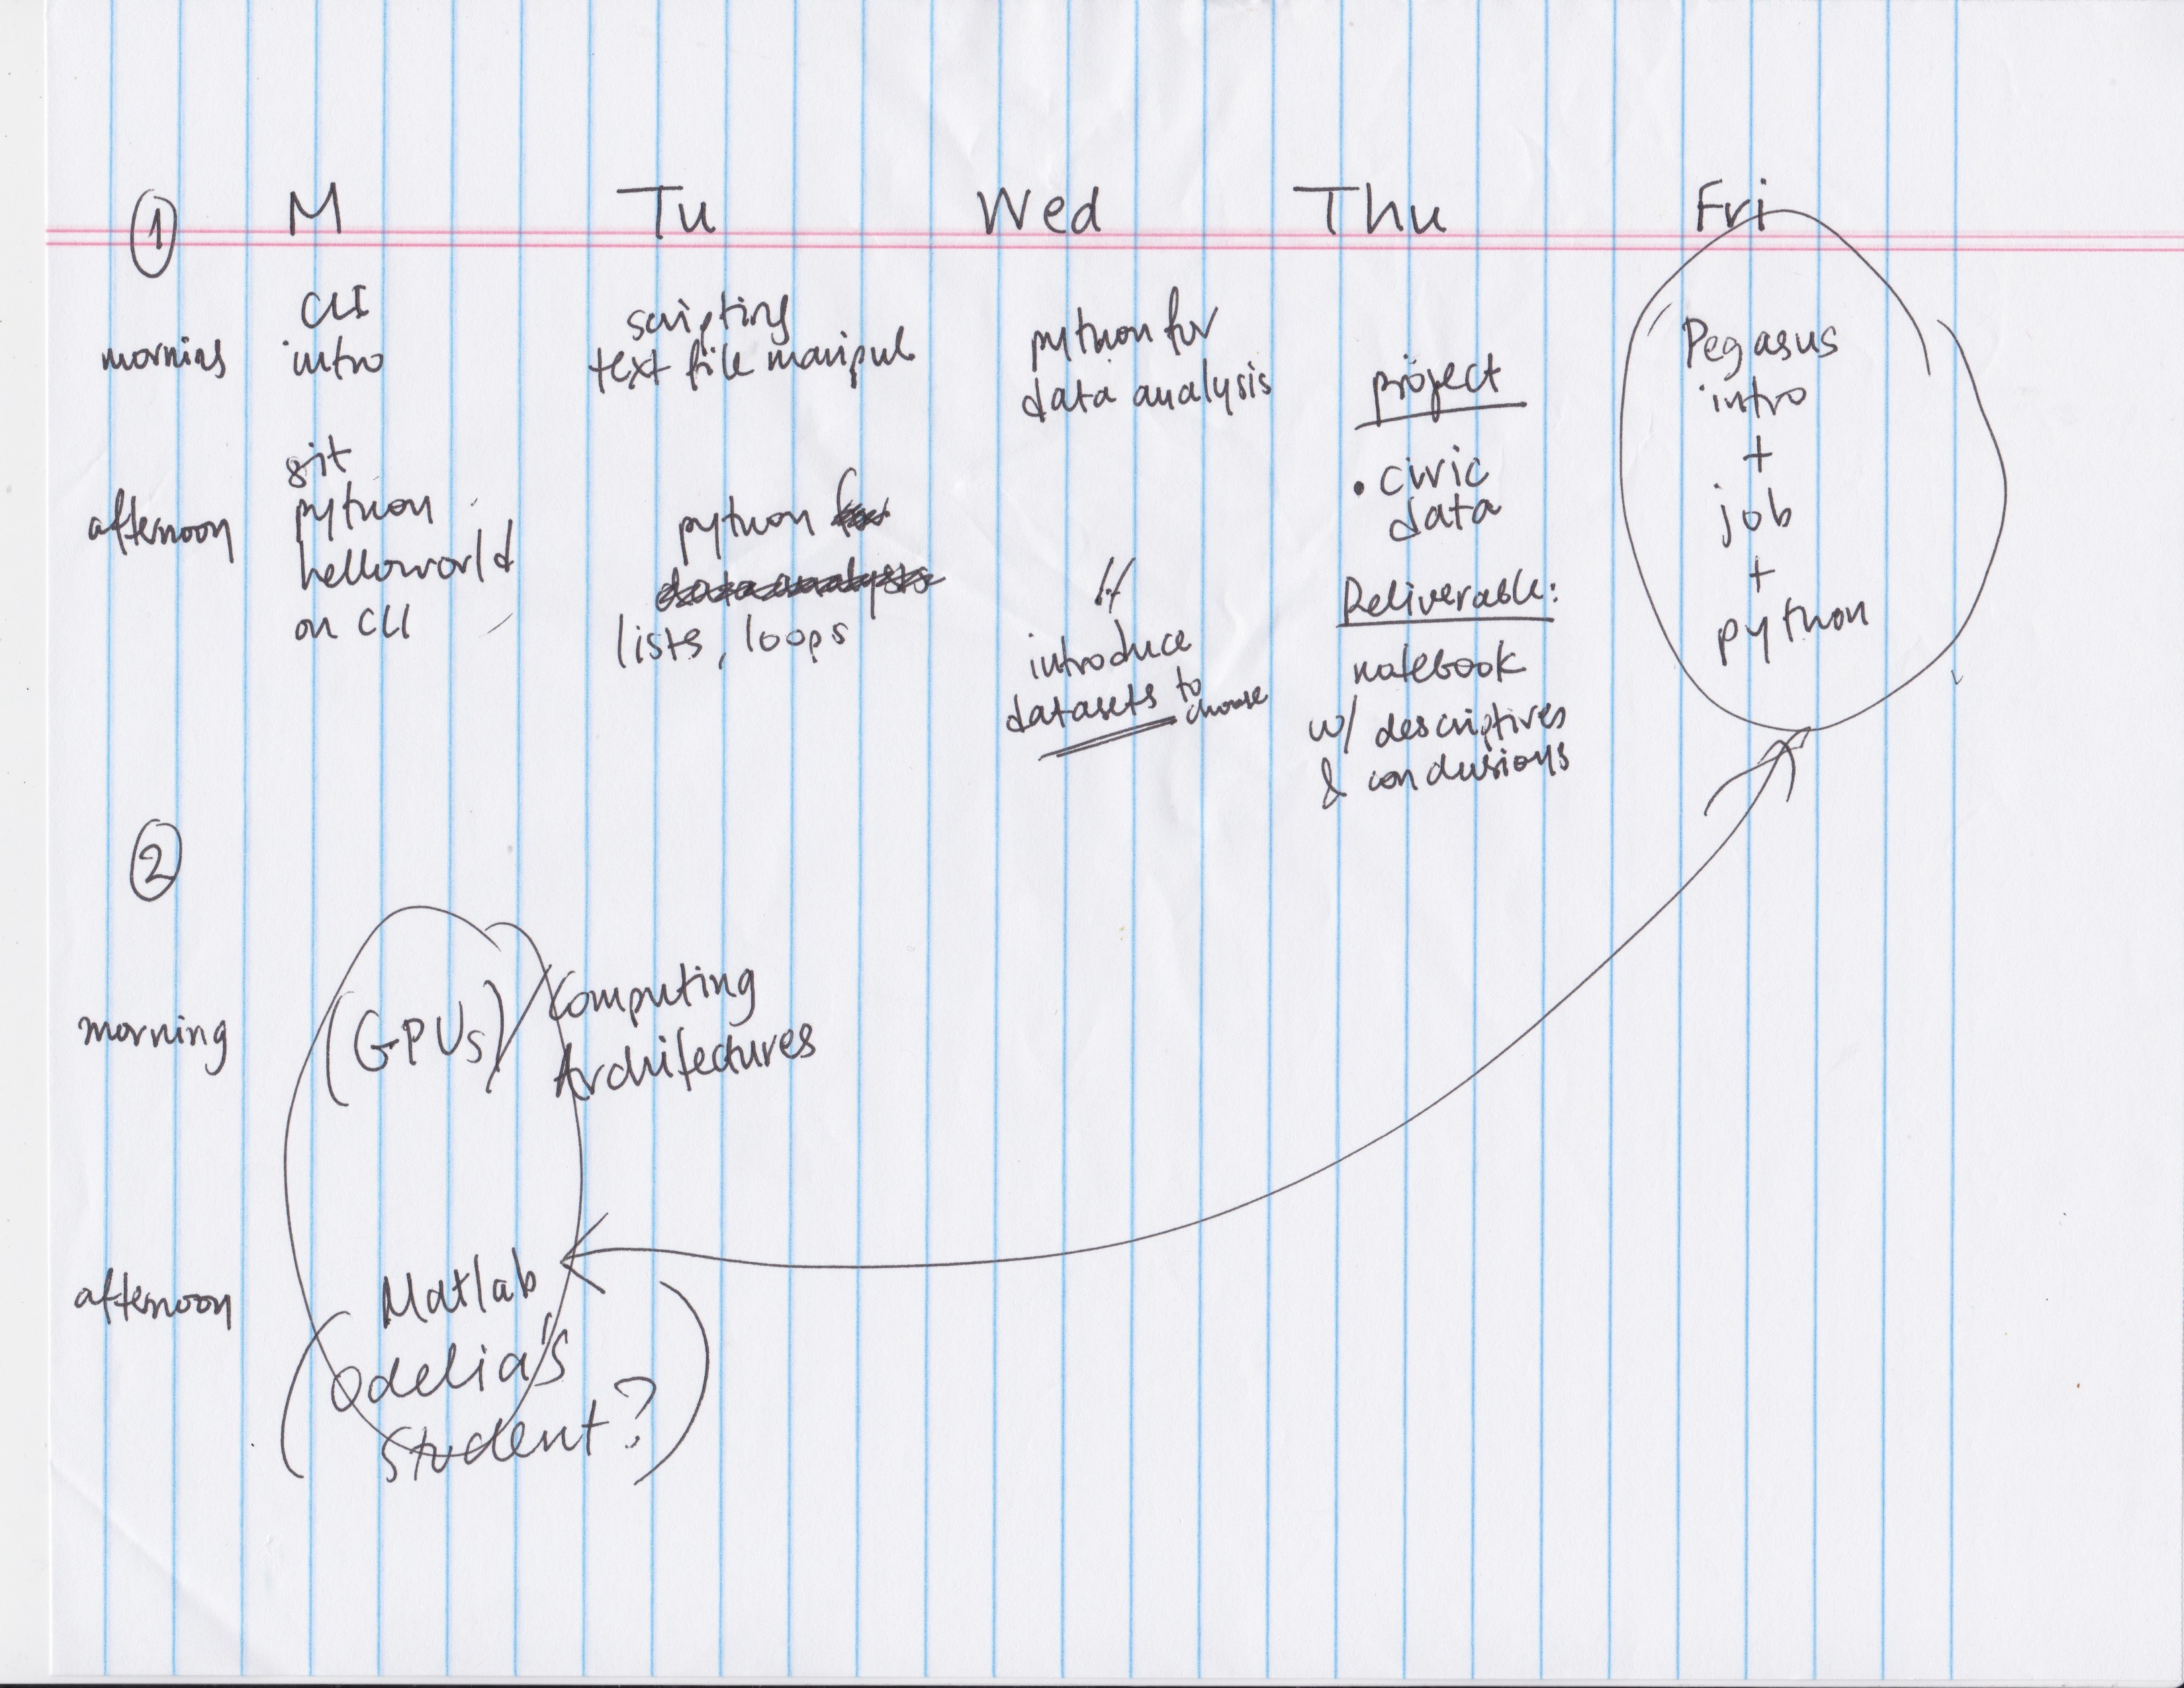 ① M Tu Wed Thu Fri
morning
CLI
intro
scripting
text file manipul
python for
data analysis
project
• civic
data
Deliverable:
notebook
w/ descriptives
& conclusions
Pegasus
intro
+
job
+
python
afternoon
git
python
helloworld
on CLI
python for
data analysis
lists, loops
//
introduce
datasets to
choose
②
morning
(GPUs)/Computing
Architectures
afternoon
Matlab
(Odelia's
Student?)